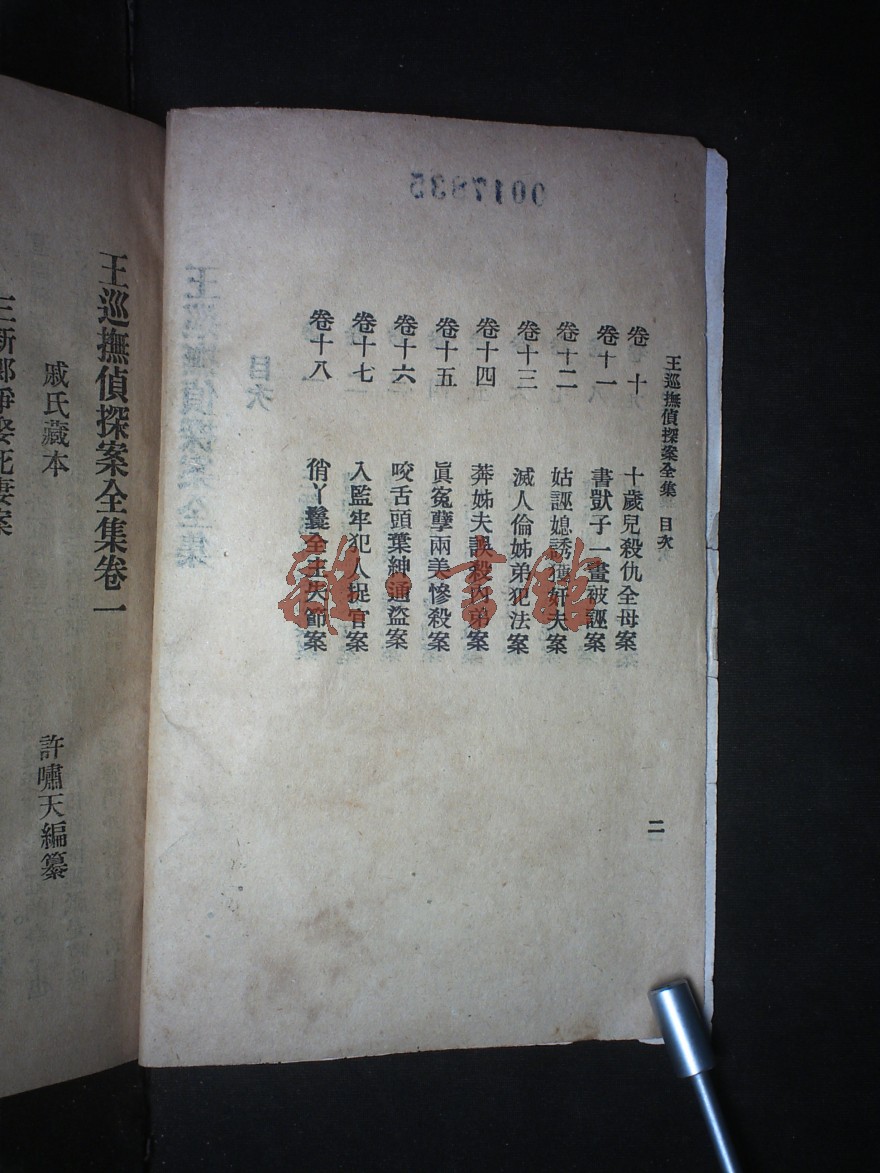 0017835
王巡撫偵探案全集 目次
卷十 十歲兒殺仇全母案
卷十一 書獃子一畫被誣案
卷十二 姑誣媳誘獲奸夫案
卷十三 滅人倫姊弟犯法案
卷十四 莽姊夫誤殺內弟案
卷十五 眞冤孽兩美慘殺案
卷十六 咬舌頭葉紳通盜案
卷十七 入監牢犯人捉官案
卷十八 俏丫鬟全主失節案
二
王巡撫偵探案全集
目次
王巡撫偵探案全集卷一
戚氏藏本
許嘯天編纂
王新郎爭娶死妻案
雜·書館